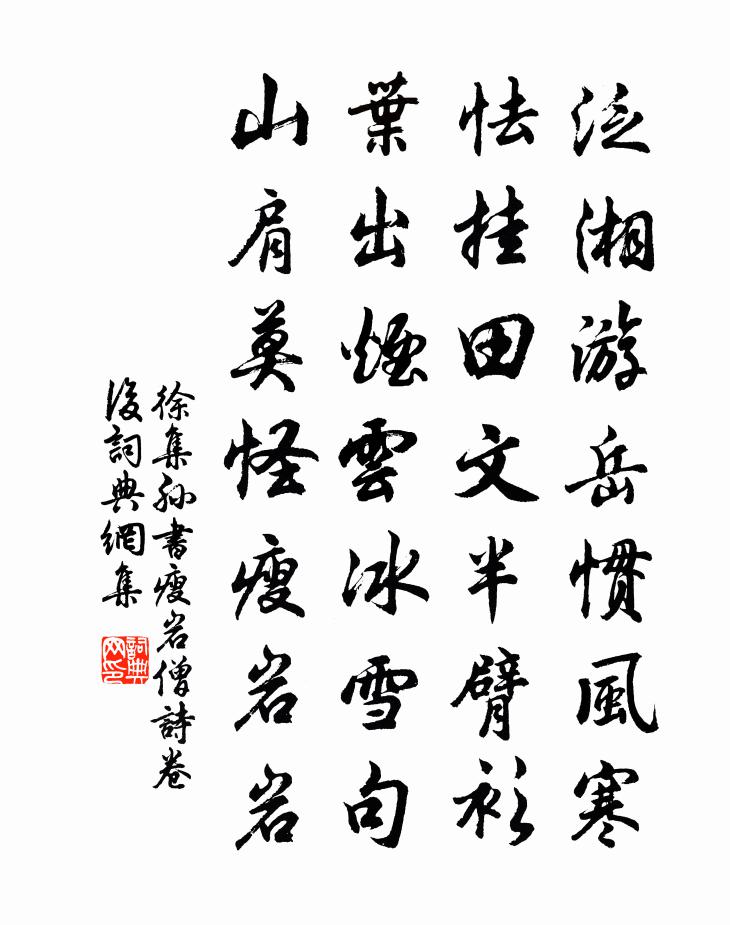 泛湘游岳慣風寒
怯挂田文半臂衫
葉出煙雲冰雪句
山肩莫怪瘦岩岩
徐集孙書瘦岩僧詩卷
後詞典網集
詞典
网印